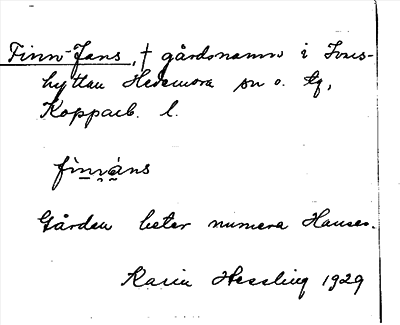 Finn-Jans, † gårdsnamn i Ivars-
hyttan Hedemora sn o. tg,
Kopparb. l.
finʌáns
Gården heter numera Hanses.
Karin Hessling 1929